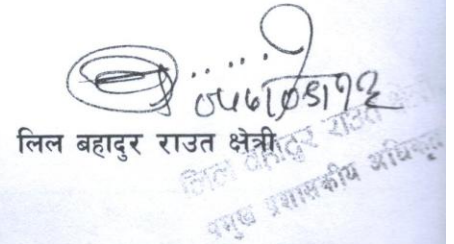 लिल बहादुर राउत क्षेत्री
लिल बहादुर राउत क्षेत्री
प्रमुख प्रशासकीय अधिकृत